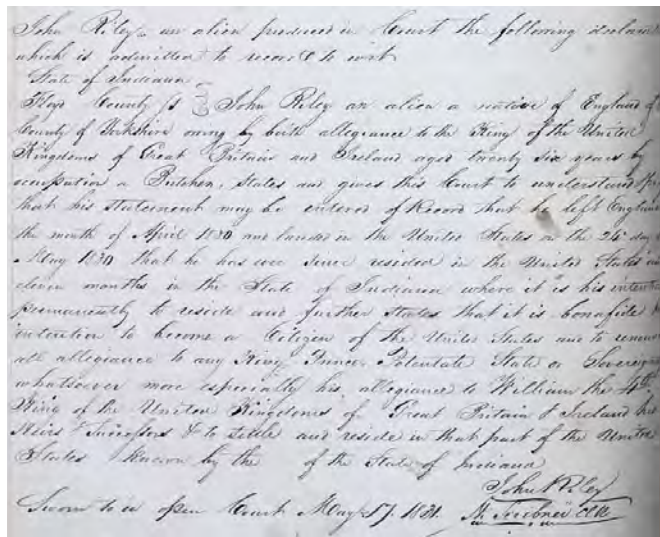 John Riley an alien produced in Court the following declarat
which is admitted to record to wit
State of Indiana
Floyd County ss John Riley an alien a native of England of
County of Yorkshire owing by birth allegiance to the King of the United
Kingdoms of Great Britain and Ireland aged twenty six years by
occupation a Butcher, States and gives this Court to understand
that his statement may be entered of Record that he left England
the month of April 1830 and landed in the United States on the 24th day
May 1830 that he has ever since resided in the United States and
eleven months in the State of Indiana where it is his intent
permanently to reside and further states that it is bonafide
intention to become a Citizen of the United States and to renoun
all allegiance to any King Prince Potentate State or Sovereign
whatsoever more especially his allegiance to William the 4th
King of the United Kingdoms of Great Britain & Ireland his
Heirs & Successors & to settle and reside in that part of the United
States known by the of the State of Indiana
John Riley
Sworn to in open Court May 17. 1831. Scribner Clk